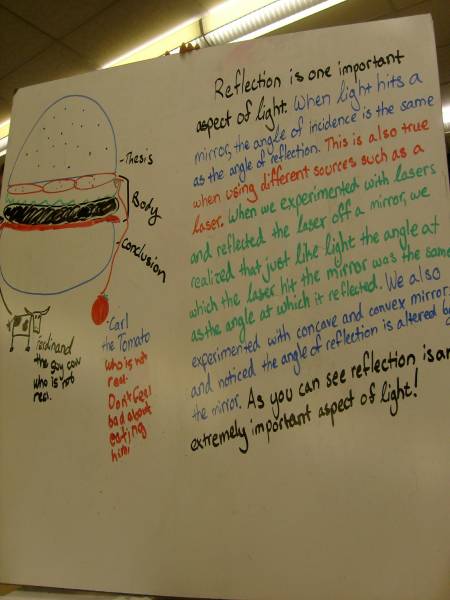 Thesis
Body
Conclusion
Ferdinand
the guy cow
who is not
real.
Carl
the Tomato
who is not
real.
Don't feel
bad about
eating
him!
Reflection is one important
aspect of light. When light hits a
mirror, the angle of incidence is the same
as the angle of reflection. This is also true
when using different sources such as a
laser. When we experimented with lasers
and reflected the laser off a mirror, we
realized that just like light the angle at
which the laser hit the mirror was the same
as the angle at which it reflected. We also
experimented with concave and convex mirror
and noticed the angle of reflection is altered
the mirror. As you can see reflection is an
extremely important aspect of light!